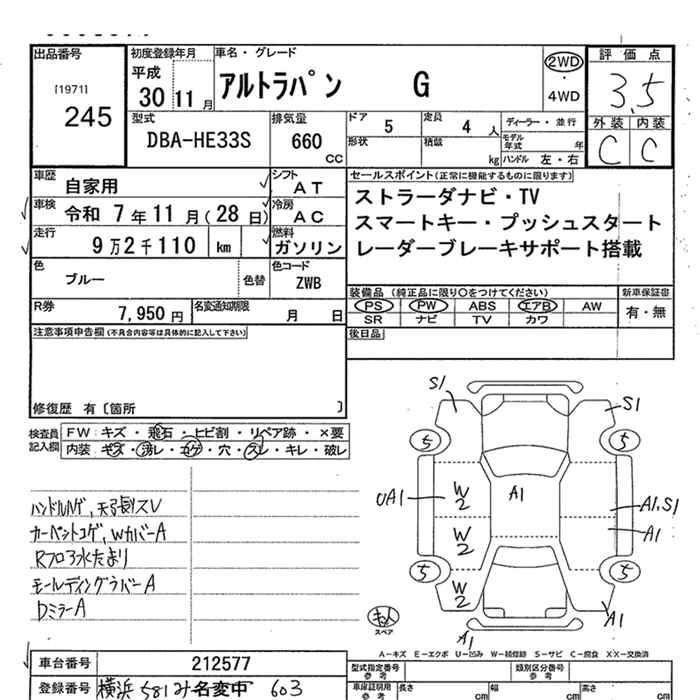 出品番号 初度登録年月 車名・グレード 評価点
[1971]
245
平成
30 11 月
アルトラパン G
2WD
・
4WD
3.5
外装 内装
C C
型式
DBA-HE33S
排気量
660
CC
ドア 5
定員 4 人
ディーラー・並行
形状
積載 kg
モデル年式 年
ハンドル 左・右
車歴 自家用
シフト AT
車検 令和 7 年 11 月 (28 日)
冷房 AC
走行 9 万 2 千 110 km
燃料 ガソリン
色 ブルー 色替
色コード ZWB
R券 7,950 円
名変通知期限 月 日
セールスポイント(正常に機能するものに限ります)
ストラーダナビ・TV
スマートキー・プッシュスタート
レーダーブレーキサポート搭載
装備品 (純正品に限り○をつけてください) 新車保証書
PS PW ABS エアB AW 有・無
SR ナビ TV カワ
後日品
注意事項申告欄(不具合内容等は具体的に記入して下さい)
修復歴 有〔箇所 〕
検査員記入欄
FW: キズ・飛石・ヒビ割・リペア跡・×要
内装: キズ・汚レ・コゲ・穴・スレ・キレ・破レ
ハンドルハゲ, 天張スレ
カーペットコゲ, WカバーA
Rフロア水たまり
モールディングラバーA
DミラーA
S1 S1
5 5
UA1 W2 A1 A1.S1
W2 A1
5 5
W2
A1
A1
スペア
A-キズ E-エクボ U-凹み W-補修跡 S-サビ C-腐食 XX-交換済
車台番号 212577
登録番号 横浜 581 み 名変中 603
型式指定番号 参考
類別区分番号 参考
車庫証明用 参考
長さ cm
幅 cm
高さ cm